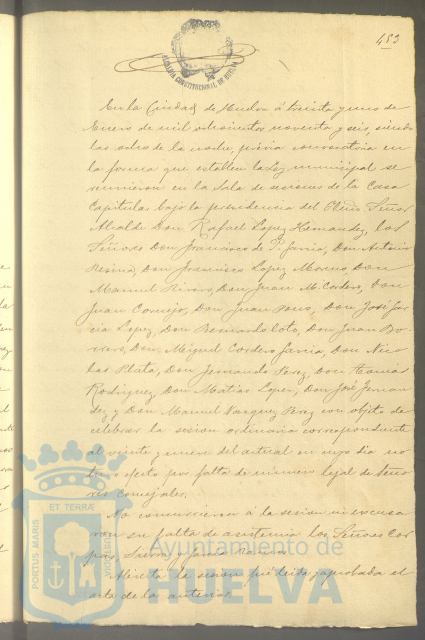 483
ALCALDÍA CONSTITUCIONAL DE HUELVA
En la Ciudad de Huelva á treinta y uno de
Enero de mil ochocientos noventa y seis, siendo
las ocho de la noche, previa convocatoria en
la forma que establece la Ley municipal se
reunieron en la Sala de sesiones de la Casa
Capitular bajo la presidencia del Señor
Alcalde Don Rafael Lopez Hernandez, los
Señores Don Francisco de P. Garcia, Don Antonio
Resina, Don Francisco Lopez Moreno, Don
Manuel Rivero, Don Juan M. Cordero, Don
Juan Cornejo, Don Juan Pons, Don José Gar
cia Lopez, Don Bernardo Coto, Don Juan Bo
rrero, Don Miguel Cordero Garcia, Don Nico
las Plata, Don Fernando Perez, Don Tomas
Rodriguez, Don Matias Lopez, Don José Fernan
dez y Don Manuel Vazquez Perez con objeto de
celebrar la sesion ordinaria correspondiente
al veinte y nueve del actual en cuyo dia no
tuvo efecto por falta de número legal de Seño
res Concejales.
No concurrieron á la sesion ni excusa
ron su falta de asistencia los Señores Cor
y
Abierta la sesion fué leida y aprobada el
acta de la anterior.
ET TERRÆ
PORTUS MARIS
CUSTODIA
Ayuntamiento de
HUELVA